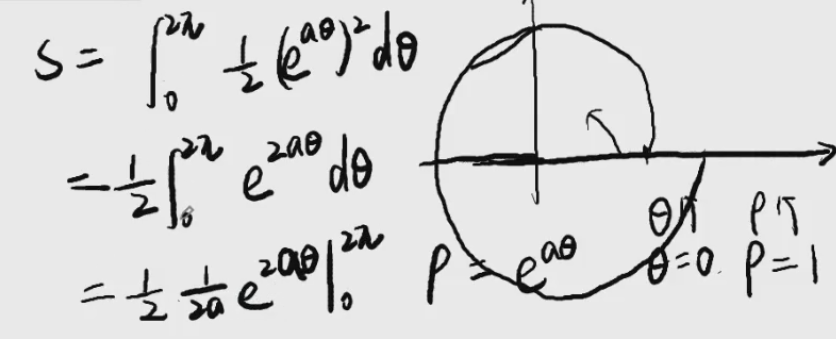 S = ∫₀^{2π} 1/2 (e^{aθ})² dθ
= 1/2 ∫₀^{2π} e^{2aθ} dθ
= 1/2 1/2a e^{2aθ} |₀^{2π}
ρ = e^{aθ}
θ↑ ρ↑
θ=0. ρ=1